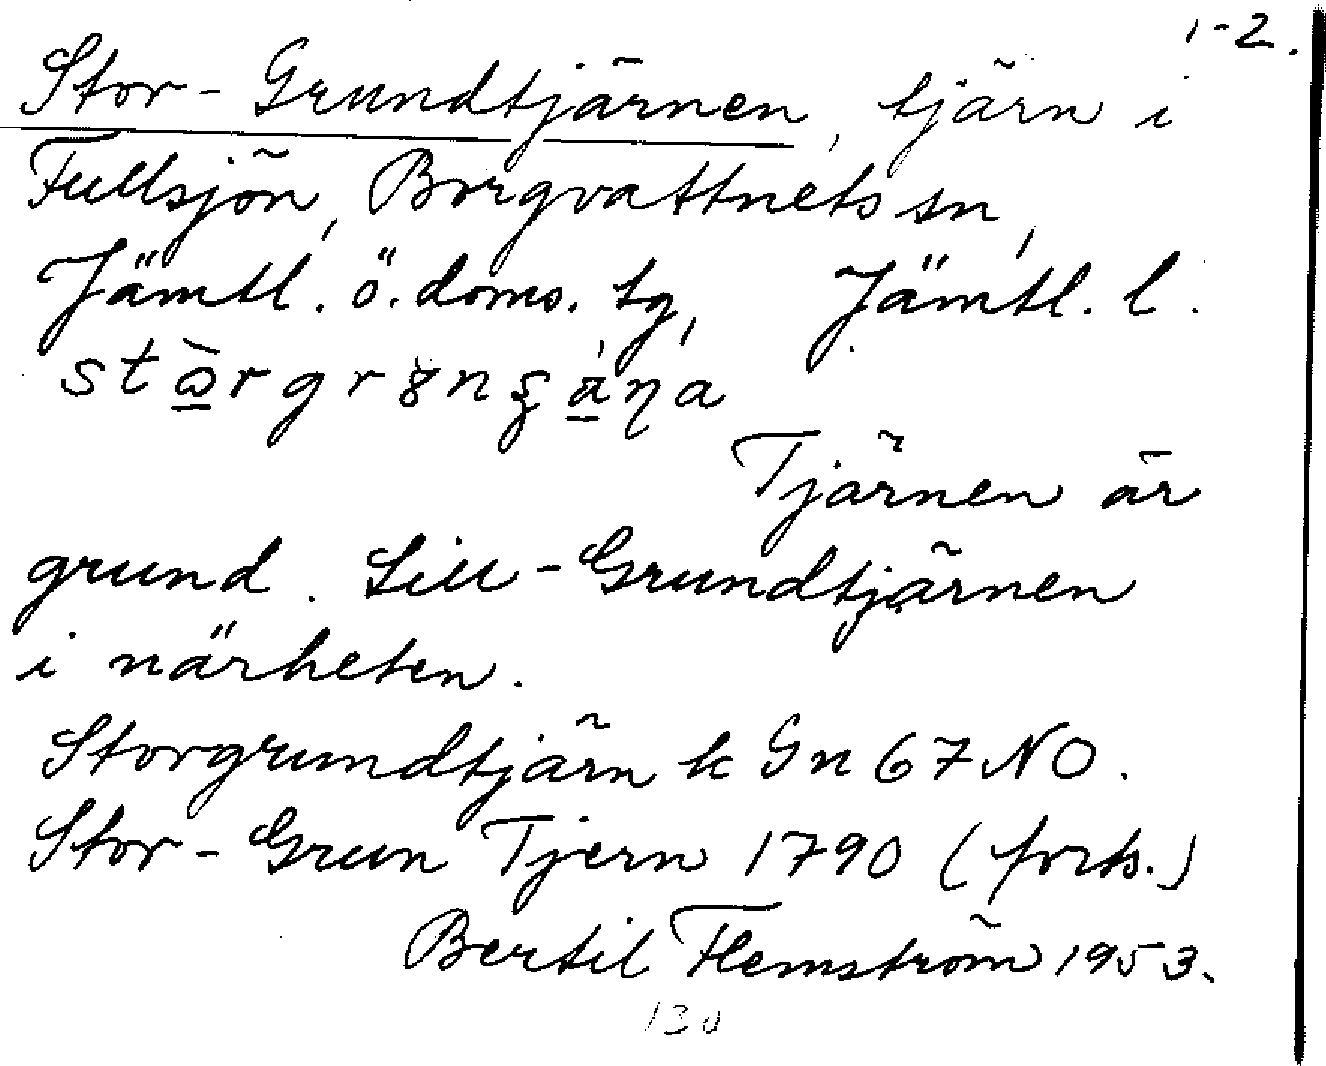 1-2.
Stor-Grundtjärnen, tjärn i
Fullsjön, Borgvattnets sn,
Jämtl. ö. doms. tg, Jämtl. l.
Tjärnen är
grund. Lill-Grundtjärnen
i närheten.
Storgrundtjärn k Gn 67 NO.
Stor-Grun Tjern 1790 (forts.)
Bertil Flemström 1953.
130